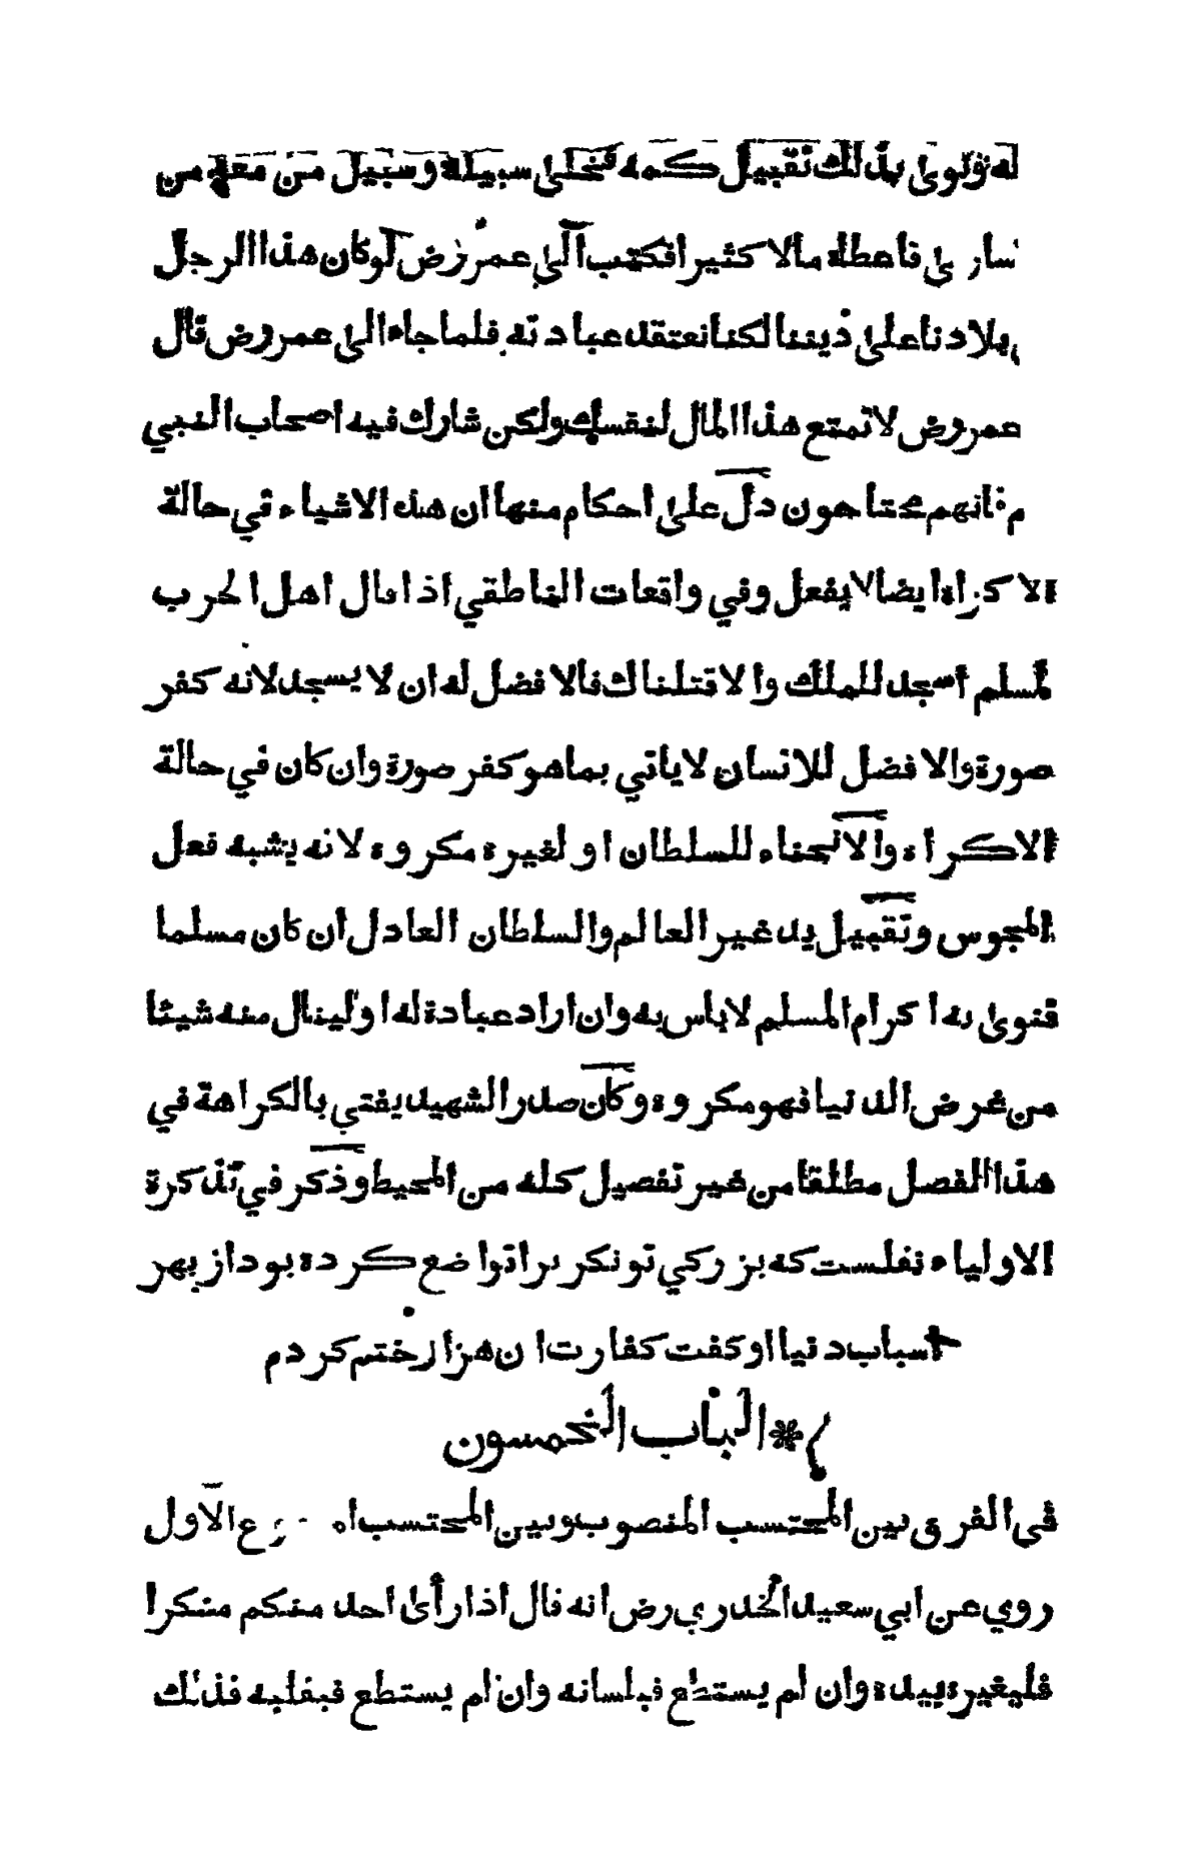 له ونوى بذلك تقبيل كمه فخلى سبيله وسبيل من معه من
اسارى فاعطاه مالا كثيرا فكتب الى عمر رض لو كان هذا الرجل
ببلادنا على ديننا لكنا نعتقد عبادته فلما جاء الى عمر رض قال
عمر رض لا تمتع هذا المال لنفسك ولكن شارك فيه اصحاب النبي
م فانهم محتاجون دل على احكام منها ان هذه الاشياء في حالة
الاكراه ايضا لا يفعل وفي واقعات الناطقي اذا قال اهل الحرب
لمسلم اسجد للملك والا قتلناك فالافضل له ان لا يسجد لانه كفر
صورة والافضل للانسان لا ياتي بما هو كفر صورة وان كان في حالة
الاكراه والانحناء للسلطان او لغيره مكروه لانه يشبه فعل
المجوس وتقبيل يد غير العالم والسلطان العادل ان كان مسلما
فنوى به اكرام المسلم لا باس به وان اراد عبادة له او لينال منه شيئا
من غرض الدنيا فهو مكروه وكان صدر الشهيد يفتي بالكراهة في
هذا الفصل مطلقا من غير تفصيل كله من المحيط وذكر في تذكرة
الاولياء نقلست كه بزركي تونكر يرا تواضع كرده بود از بهر
اسباب دنيا او كفت كفارت ان هزار ختم كردم
الباب الخمسون
في الفرق بين المحتسب المنصوب وبين المحتسب الاول
روي عن ابي سعيد الخدري رض انه قال اذا رأى احد منكم منكرا
فليغيره بيده وان لم يستطع فبلسانه وان لم يستطع فبقلبه فذلك